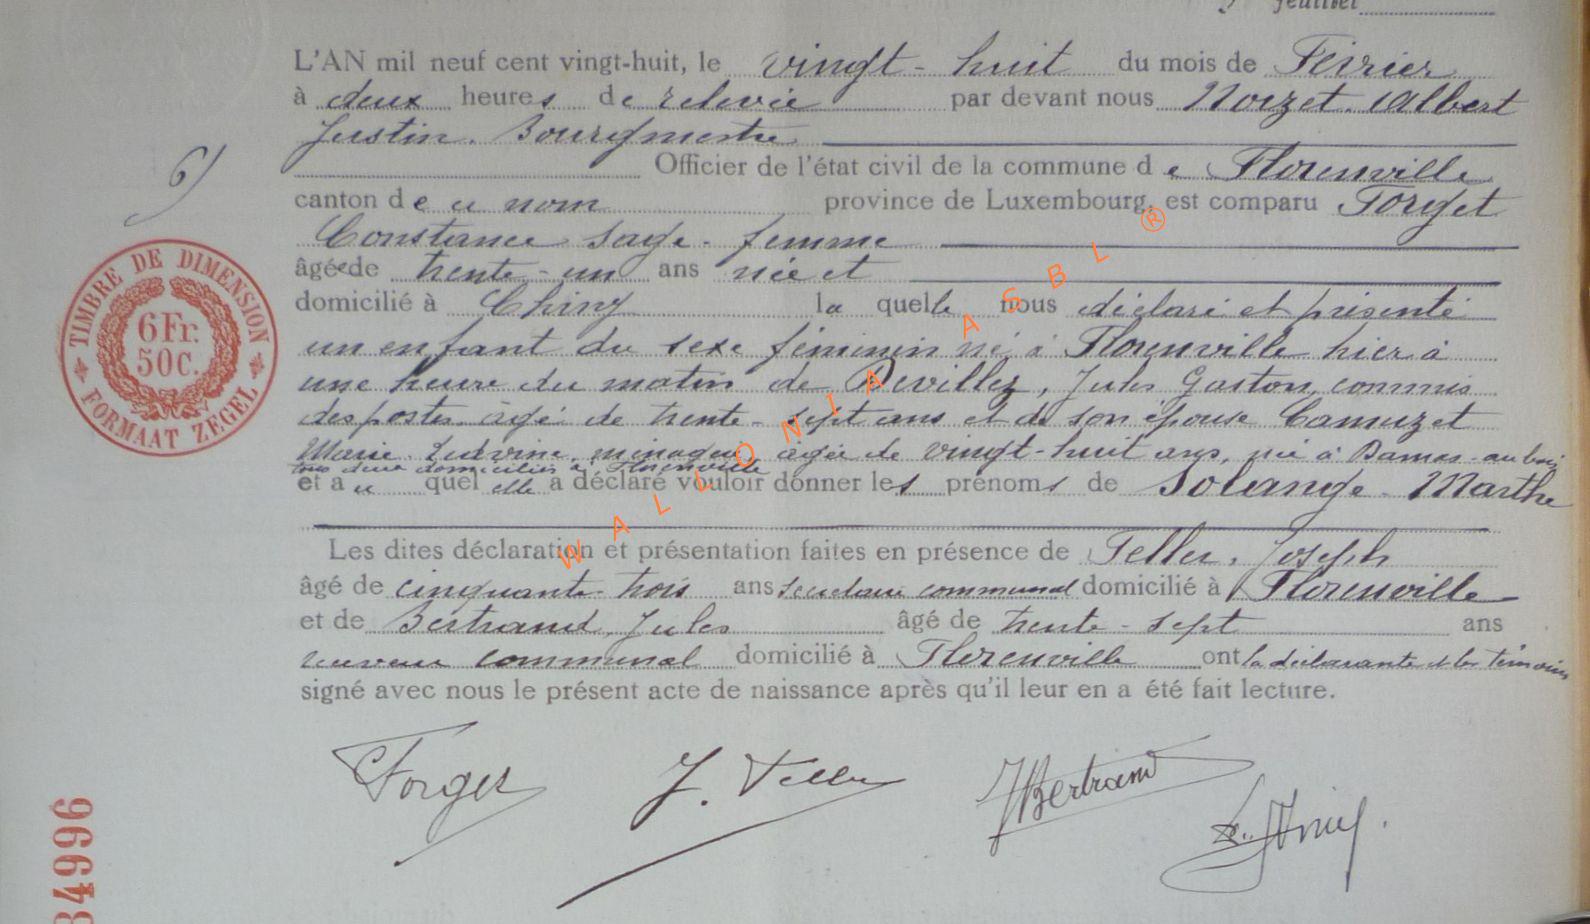 feuillet
L'AN mil neuf cent vingt-huit, le vingt-huit du mois de Février
à deux heures de relevée par devant nous Noizet Albert
Justin. Bourgmestre
6) Officier de l'état civil de la commune de Florenville
canton de ce nom province de Luxembourg, est comparu Forget
Constance sage-femme
âgée de trente-un ans née et
domicilié à Chiny la quelle nous déclaré et présenté
un enfant du sexe féminin né à Florenville hier à
une heure du matin de Devillez, Jules Gaston, commis
des postes âgé de trente-sept ans et de son épouse Camuzet
Marie Ludvine, ménagère âgée de vingt-huit ans, née à Bamas-au bois
tous deux domiciliés à Florenville
et a u quel elle a déclaré vouloir donner les prénoms de Solange-Marthe
Les dites déclaration et présentation faites en présence de Feller, Joseph
âgé de cinquante-trois ans secrétaire communal domicilié à Florenville
et de Bertrand, Jules âgé de trente-sept ans
receveur communal domicilié à Florenville ont la déclarante et les témoins
signé avec nous le présent acte de naissance après qu'il leur en a été fait lecture.
C Forget J. Feller J Bertrand
TIMBRE DE DIMENSION
6Fr.
50C.
FORMAAT ZEGEL
34996
WALLONIA ASBL ®